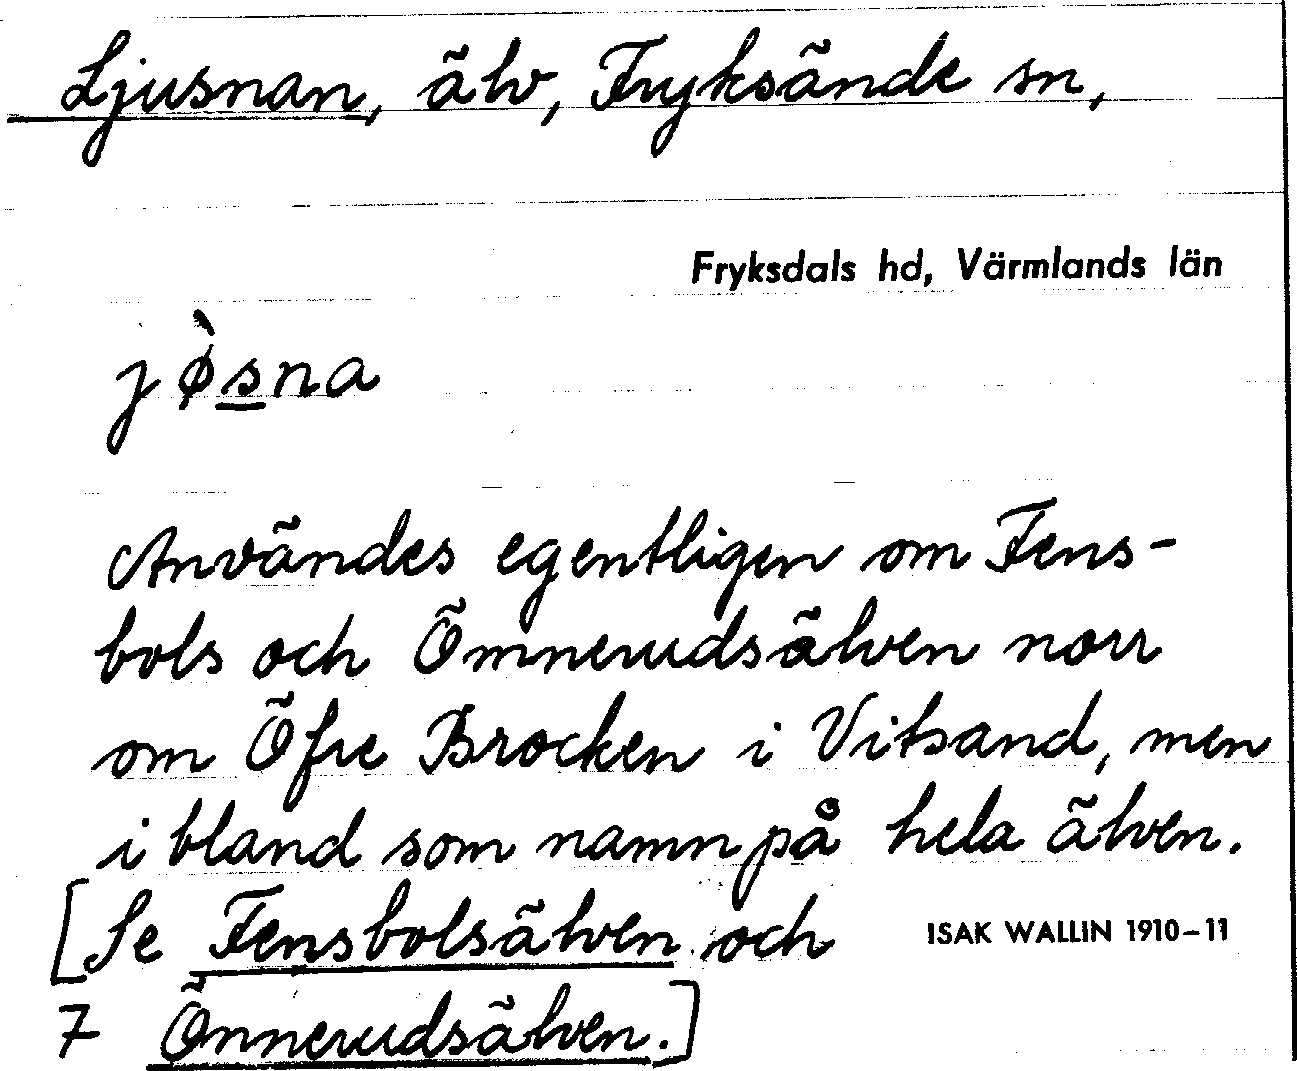 Ljusnan, älv, Fryksände sn,
Fryksdals hd, Värmlands län
jø̀s̲na
Användes egentligen om Fens-
bols och Ömnerudsälven norr
om Öfre Brocken i Vitsand, men
i bland som namn på hela älven.
[Se Fensbolsälven och
ISAK WALLIN 1910-11
7 Önnerudsälven.]